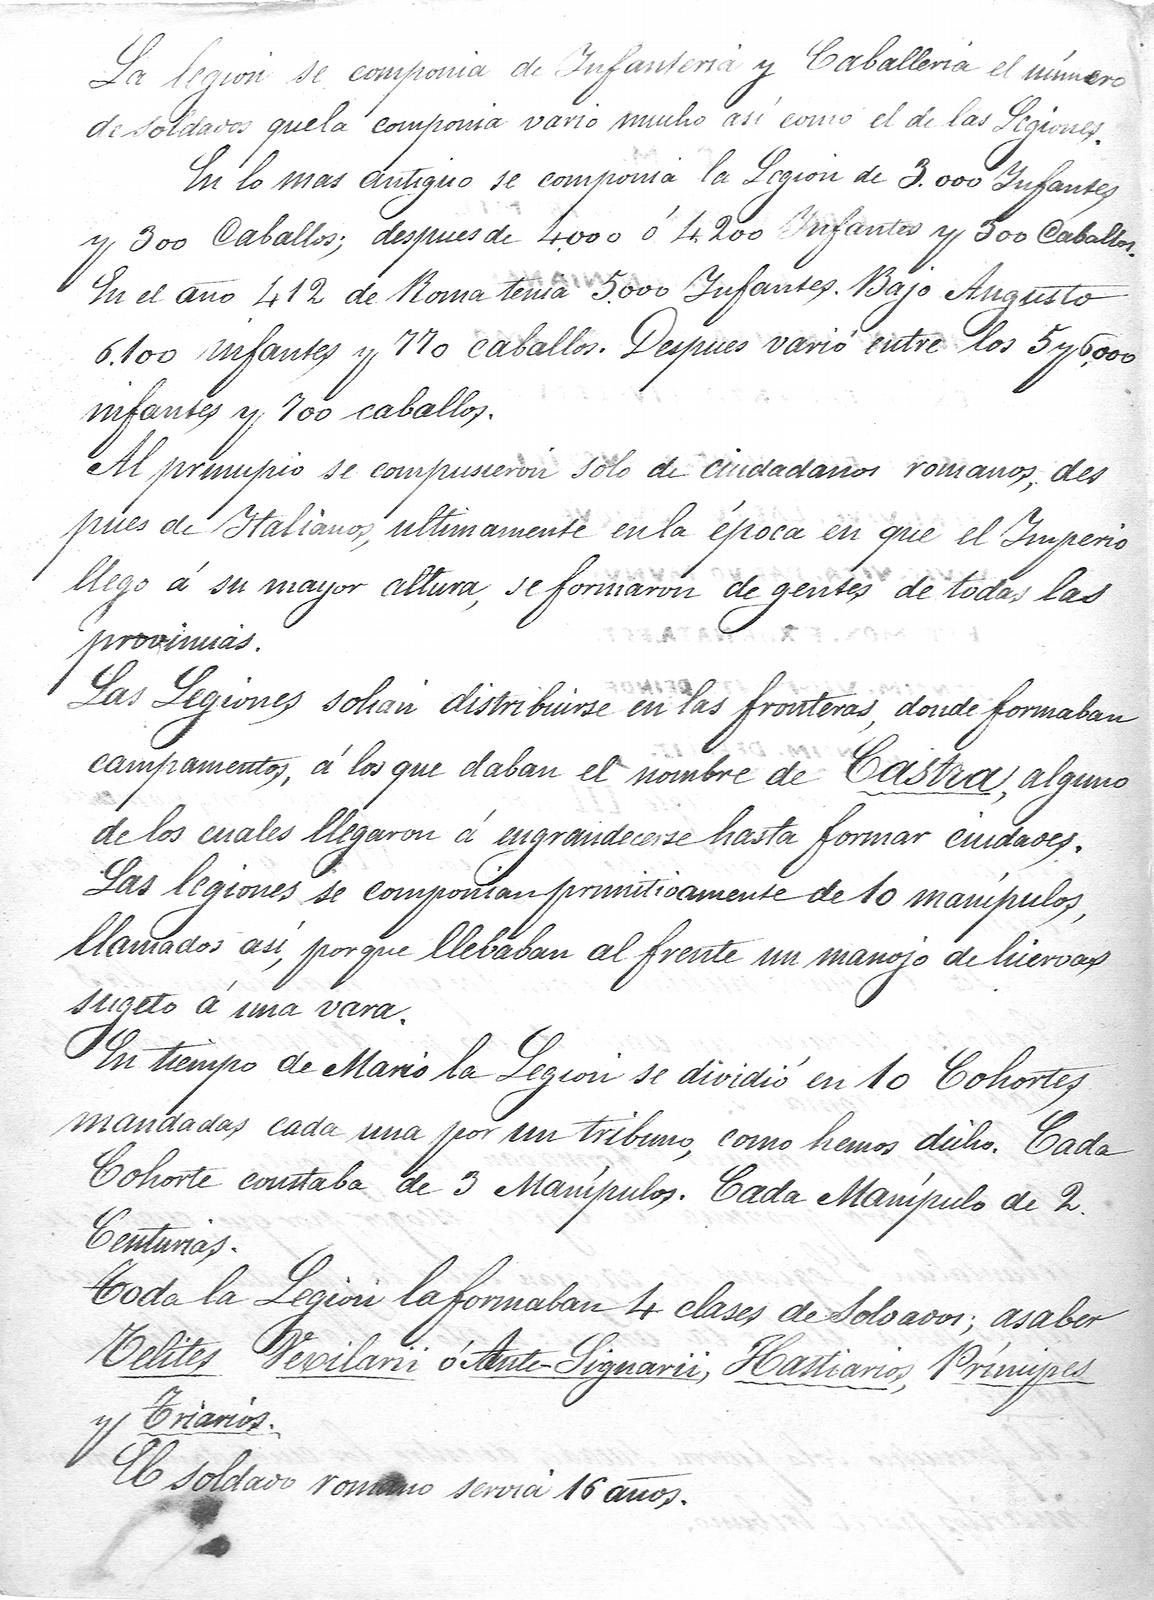 La legión se componia de Infanteria y Caballeria el número
de soldados que la componia vario mucho así como el de las Legiones.
En lo mas antiguo se componia la Legion de 3.000 Infantes
y 300 Caballos; despues de 4.000 ó 4.200 Infantes y 300 Caballos.
En el año 412 de Roma tenia 5.000 Infantes. Bajo Augusto
6.100 infantes y 770 caballos. Despues varió entre los 5 y 6,000
infantes y 700 caballos.
Al principio se compusieron solo de ciudadanos romanos, des
pues de Italianos, ultimamente en la época en que el Imperio
llego á su mayor altura, se formaron de gentes de todas las
provincias.
Las Legiones solian distribuirse en las fronteras, donde formaban
campamentos, á los que daban el nombre de Castra, alguno
de los cuales llegaron á engrandecerse hasta formar ciudades.
Las legiones se componian primitivamente de 10 manípulos,
llamados así, porque llebaban al frente un manojo de hiervas
sugeto á una vara.
En tiempo de Mario la Legion se dividió en 10 Cohortes,
mandadas cada una por un tribuno, como hemos dicho. Cada
Cohorte constaba de 3 Manípulos. Cada Manípulo de 2
Centurias.
Toda la Legión la formaban 4 clases de Soldados; a saber
Velites Vexilarii ó Ante-Signarii, Hastiarios, Príncipes
y Triarios.
El soldado romano servia 16 años.